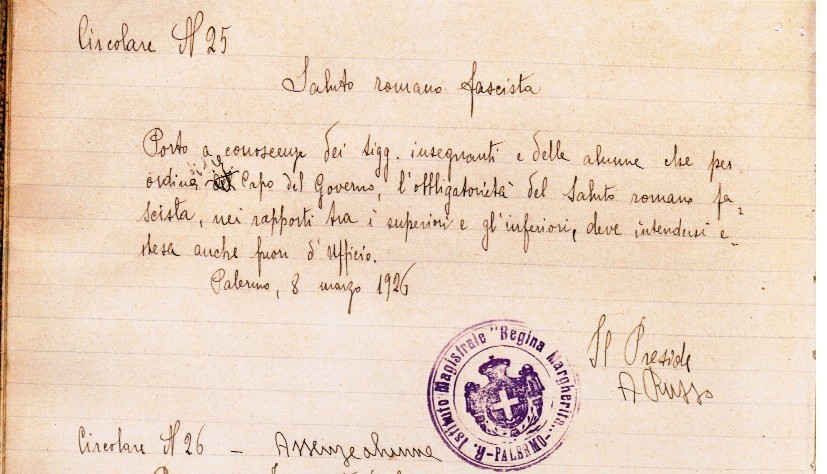 Circolare N 25
Saluto romano fascista
Porto a conoscenza dei Sigg. insegnanti e delle alunne che per
Capo del Governo, l'obbligatorietà del Saluto romano fa=
scista, nei rapporti tra i superiori e gl'inferiori, deve intendersi e=
stesa anche fuori d'Ufficio.
Palermo, 8 marzo 1926
Il Preside
A Russo
R. Istituto Magistrale "Regina Margherita"
-PALERMO-
Circolare N 26 - Assenze alunne